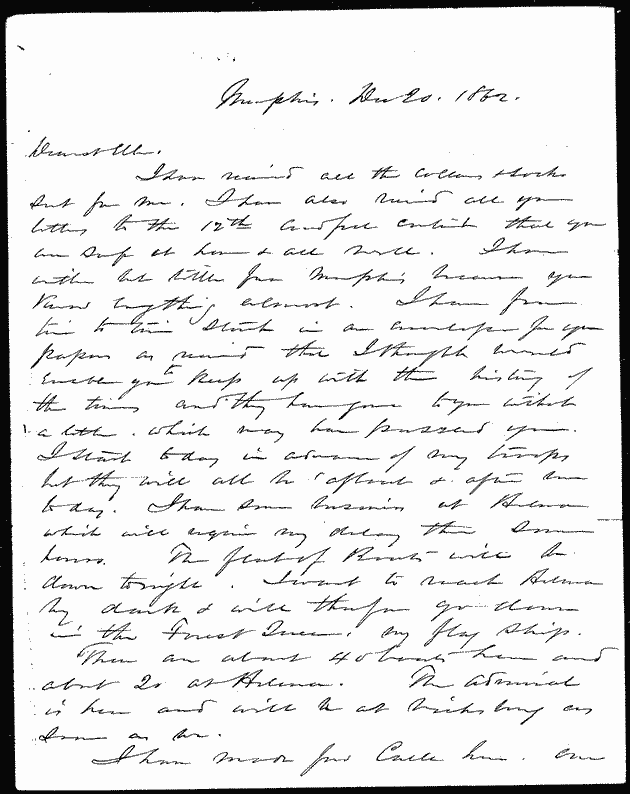 Memphis. Dec 20. 1862.
Dearest Ellen.
I have received all the collars & socks
sent for me. I have also received all your
letters to the 12th and feel content that you
are safe at home & all well. I have
written but little from Memphis because you
know everything almost. I have from
time to time stuck in an envelope for you
papers as received that I thought would
enable you to keep up with the history of
the times and they have gone to you without
a letter. which may have puzzled you.
I start today in advance of my troops
but they will all be afloat & after me
today. I have some business at Helena
which will require my delay there some
hours. The fleet of Boats will be
down tonight. I want to reach Helena
by dark & will therefore go down
in the Forest Queen, my flag ship.
There are about 40 boats here and
about 20 at Helena. The Admiral
is here and will be at Vicksburg as
soon as we.
I have made for Calls here. one